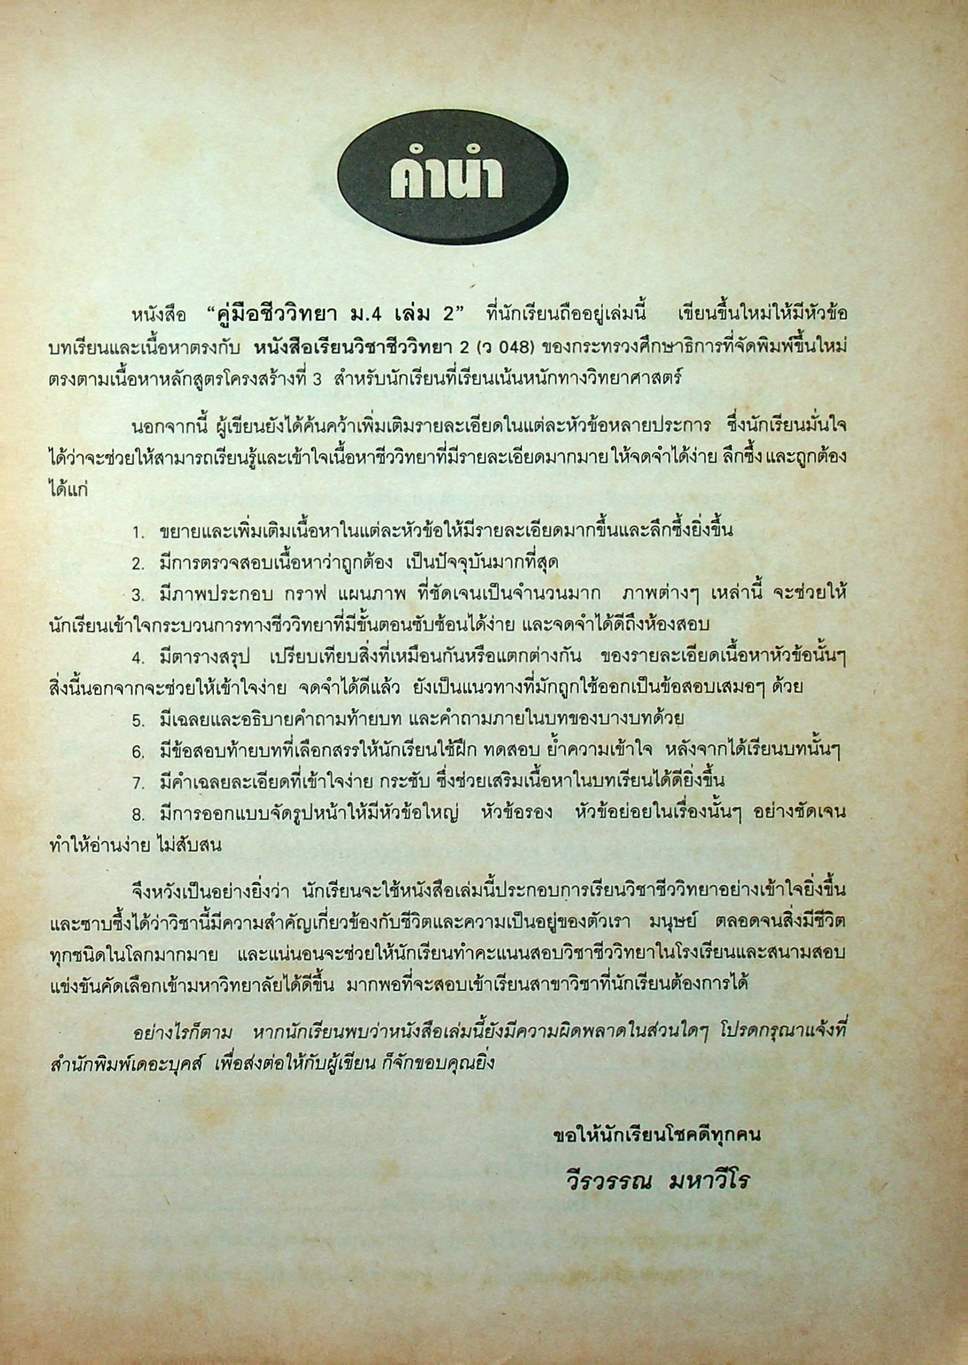 คำนำ
หนังสือ “คู่มือชีววิทยา ม.4 เล่ม 2” ที่นักเรียนถืออยู่เล่มนี้ เขียนขึ้นใหม่ให้มีหัวข้อ
บทเรียนและเนื้อหาตรงกับ หนังสือเรียนวิชาชีววิทยา 2 (ว 048) ของกระทรวงศึกษาธิการที่จัดพิมพ์ขึ้นใหม่
ตรงตามเนื้อหาหลักสูตรโครงสร้างที่ 3 สำหรับนักเรียนที่เรียนเน้นหนักทางวิทยาศาสตร์
นอกจากนี้ ผู้เขียนยังได้ค้นคว้าเพิ่มเติมรายละเอียดในแต่ละหัวข้อหลายประการ ซึ่งนักเรียนมั่นใจ
ได้ว่าจะช่วยให้สามารถเรียนรู้และเข้าใจเนื้อหาชีววิทยาที่มีรายละเอียดมากมาย ให้จดจำได้ง่าย ลึกซึ้ง และถูกต้อง
ได้แก่
1. ขยายและเพิ่มเติมเนื้อหาในแต่ละหัวข้อให้มีรายละเอียดมากขึ้นและลึกซึ้งยิ่งขึ้น
2. มีการตรวจสอบเนื้อหาว่าถูกต้อง เป็นปัจจุบันมากที่สุด
3. มีภาพประกอบ กราฟ แผนภาพ ที่ชัดเจนเป็นจำนวนมาก ภาพต่างๆ เหล่านี้ จะช่วยให้
นักเรียนเข้าใจกระบวนการทางชีววิทยาที่มีขั้นตอนซับซ้อนได้ง่าย และจดจำได้ดีถึงห้องสอบ
4. มีตารางสรุป เปรียบเทียบสิ่งที่เหมือนกันหรือแตกต่างกัน ของรายละเอียดเนื้อหาหัวข้อนั้นๆ
สิ่งนี้นอกจากจะช่วยให้เข้าใจง่าย จดจำได้ดีแล้ว ยังเป็นแนวทางที่มักถูกใช้ออกเป็นข้อสอบเสมอๆ ด้วย
5. มีเฉลยและอธิบายคำถามท้ายบท และคำถามภายในบทของบางบทด้วย
6. มีข้อสอบท้ายบทที่เลือกสรรให้นักเรียนใช้ฝึก ทดสอบ ย้ำความเข้าใจ หลังจากได้เรียนบทนั้นๆ
7. มีคำเฉลยละเอียดที่เข้าใจง่าย กระชับ ซึ่งช่วยเสริมเนื้อหาในบทเรียนได้ดียิ่งขึ้น
8. มีการออกแบบจัดรูปหน้าให้มีหัวข้อใหญ่ หัวข้อรอง หัวข้อย่อยในเรื่องนั้นๆ อย่างชัดเจน
ทำให้อ่านง่าย ไม่สับสน
จึงหวังเป็นอย่างยิ่งว่า นักเรียนจะใช้หนังสือเล่มนี้ประกอบการเรียนวิชาชีววิทยาอย่างเข้าใจยิ่งขึ้น
และซาบซึ้งได้ว่าวิชานี้มีความสำคัญเกี่ยวข้องกับชีวิตและความเป็นอยู่ของตัวเรา มนุษย์ ตลอดจนสิ่งมีชีวิต
ทุกชนิดในโลกมากมาย และแน่นอนจะช่วยให้นักเรียนทำคะแนนสอบวิชาชีววิทยาในโรงเรียนและสนามสอบ
แข่งขันคัดเลือกเข้ามหาวิทยาลัยได้ดีขึ้น มากพอที่จะสอบเข้าเรียนสาขาวิชาที่นักเรียนต้องการได้
อย่างไรก็ตาม หากนักเรียนพบว่าหนังสือเล่มนี้ยังมีความผิดพลาดในส่วนใดๆ โปรดกรุณาแจ้งที่
สำนักพิมพ์เดอะบุคส์ เพื่อส่งต่อให้กับผู้เขียน ก็จักขอบคุณยิ่ง
ขอให้นักเรียนโชคดีทุกคน
วีรวรรณ มหาวีโร